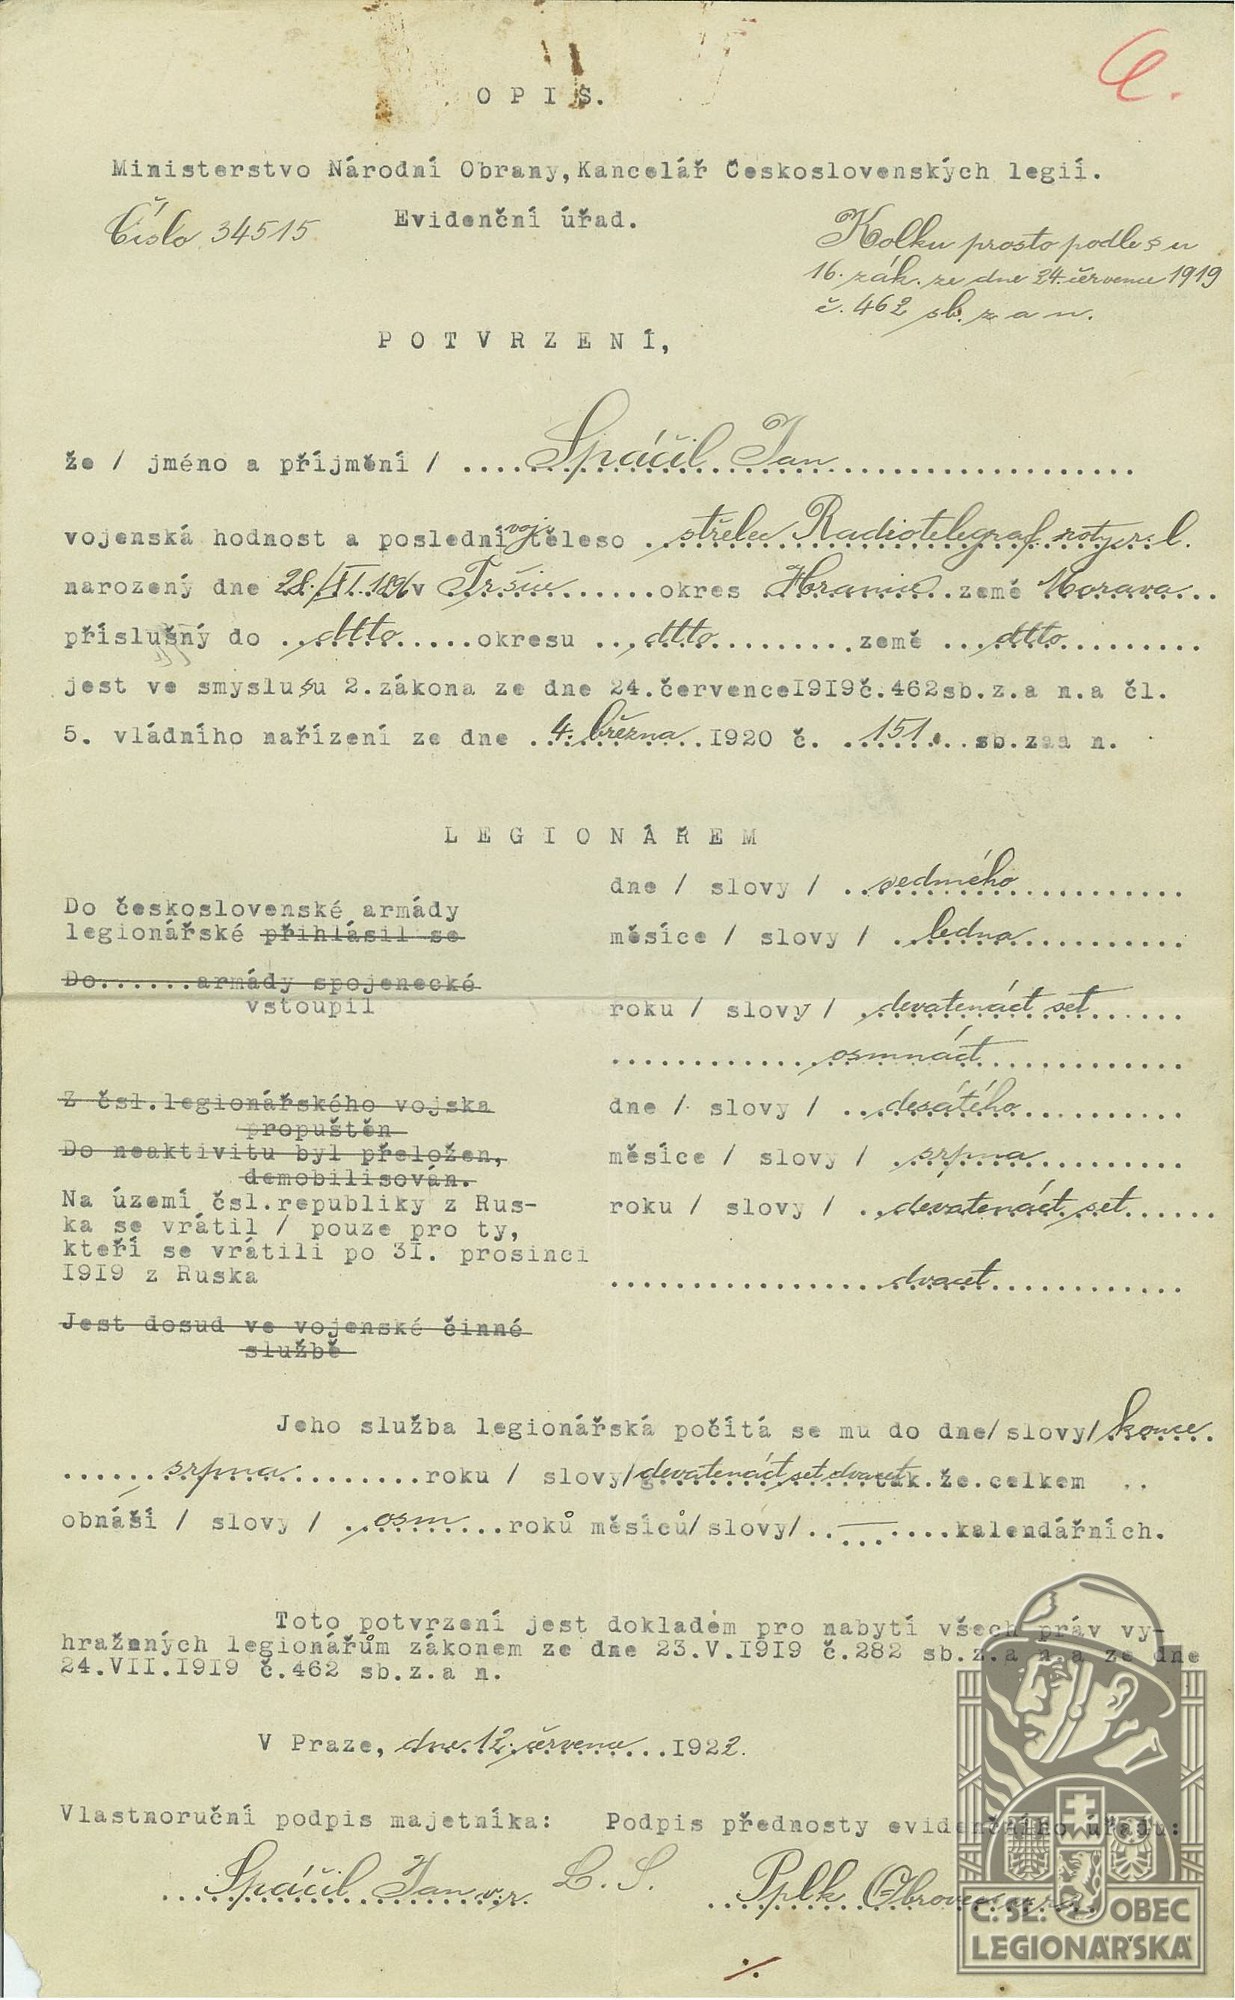 O P I S.
Ministerstvo Národní Obrany, Kancelář Československých legií.
Číslo 34515
Evidenční úřad.
Kolku prosto podle § u
16. zák. ze dne 24. července 1919
č. 462 sb. z a n.
P O T V R Z E N Í,
že / jméno a příjmění / ....Spáčil Jan....
vojenská hodnost a poslední voj. těleso ..střelec Radiotelegraf. roty
narozený dne 28./VI. v Tršice......okres Hranice..země Morava..
příslušný do ..dtto.....okresu ..dtto.........země ...dtto.........
jest ve smyslu § u 2. zákona ze dne 24. července 1919 č. 462 sb. z. a n. a čl.
5. vládního nařízení ze dne .4. března..1920 č. ..151...sb. zaa n.
L E G I O N Á Ř E M
dne / slovy / ..sedmého..........
Do československé armády
legionářské přihlásil se
měsíce / slovy / ..ledna.........
Do......armády spojenecké
vstoupil
roku / slovy / .devatenáct set.....
............osmnáct............
Z čsl. legionářského vojska
propuštěn
dne / slovy / ..desátého.........
Do neaktivitu byl přeložen,
demobilisován.
měsíce / slovy / ..srpna.........
Na území čsl. republiky z Rus-
ka se vrátil / pouze pro ty,
kteří se vrátili po 31. prosinci
1919 z Ruska
roku / slovy / ..devatenáct set......
................dvacet............
Jest dosud ve vojenské činné
službě
Jeho služba legionářská počítá se mu do dne/slovy/ konce.
......srpna........roku / slovy/ devatenáct set dvacet tak. že. celkem ..
obnáší / slovy / ..osm...roků měsíců/slovy/..—....kalendářních.
Toto potvrzení jest dokladem pro nabytí všech práv vy-
hražených legionářům zákonem ze dne 23.V.1919 č.282 sb.z.a n.a ze dne
24.VII.1919 č.462 sb.z.a n.
V Praze, dne 12. července...1922.
Vlastnoruční podpis majetníka: Podpis přednosty evidenčního úřadu:
...Spáčil Jan v.r. L. S. ..Pplk
./.
Č. SL. OBEC
LEGIONÁŘSKÁ